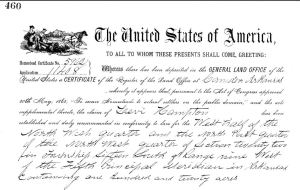 460
The United States of America,
Homestead Certificate No.
TO ALL TO WHOM THESE PRESENTS SHALL COME, GREETING:
Application
Whereas there has been deposited in the GENERAL LAND OFFICE of the
United States a CERTIFICATE of the Register of the Land Office at Camden Arkansas
whereby it appears that pursuant to the Act of Congress approved
20th May, 1862, "To secure Homesteads to actual settlers on the public domain," and the acts
supplemental thereto, the claim of Levi Hampton has been
established and duly consummated in conformity to law for the West half of the
North West quarter and the North East quarter
of the North West quarter of Section twenty two
in Township fifteen South of Range nine West
of the Fifth Principal Meridian in Arkansas
Containing one hundred and twenty acres